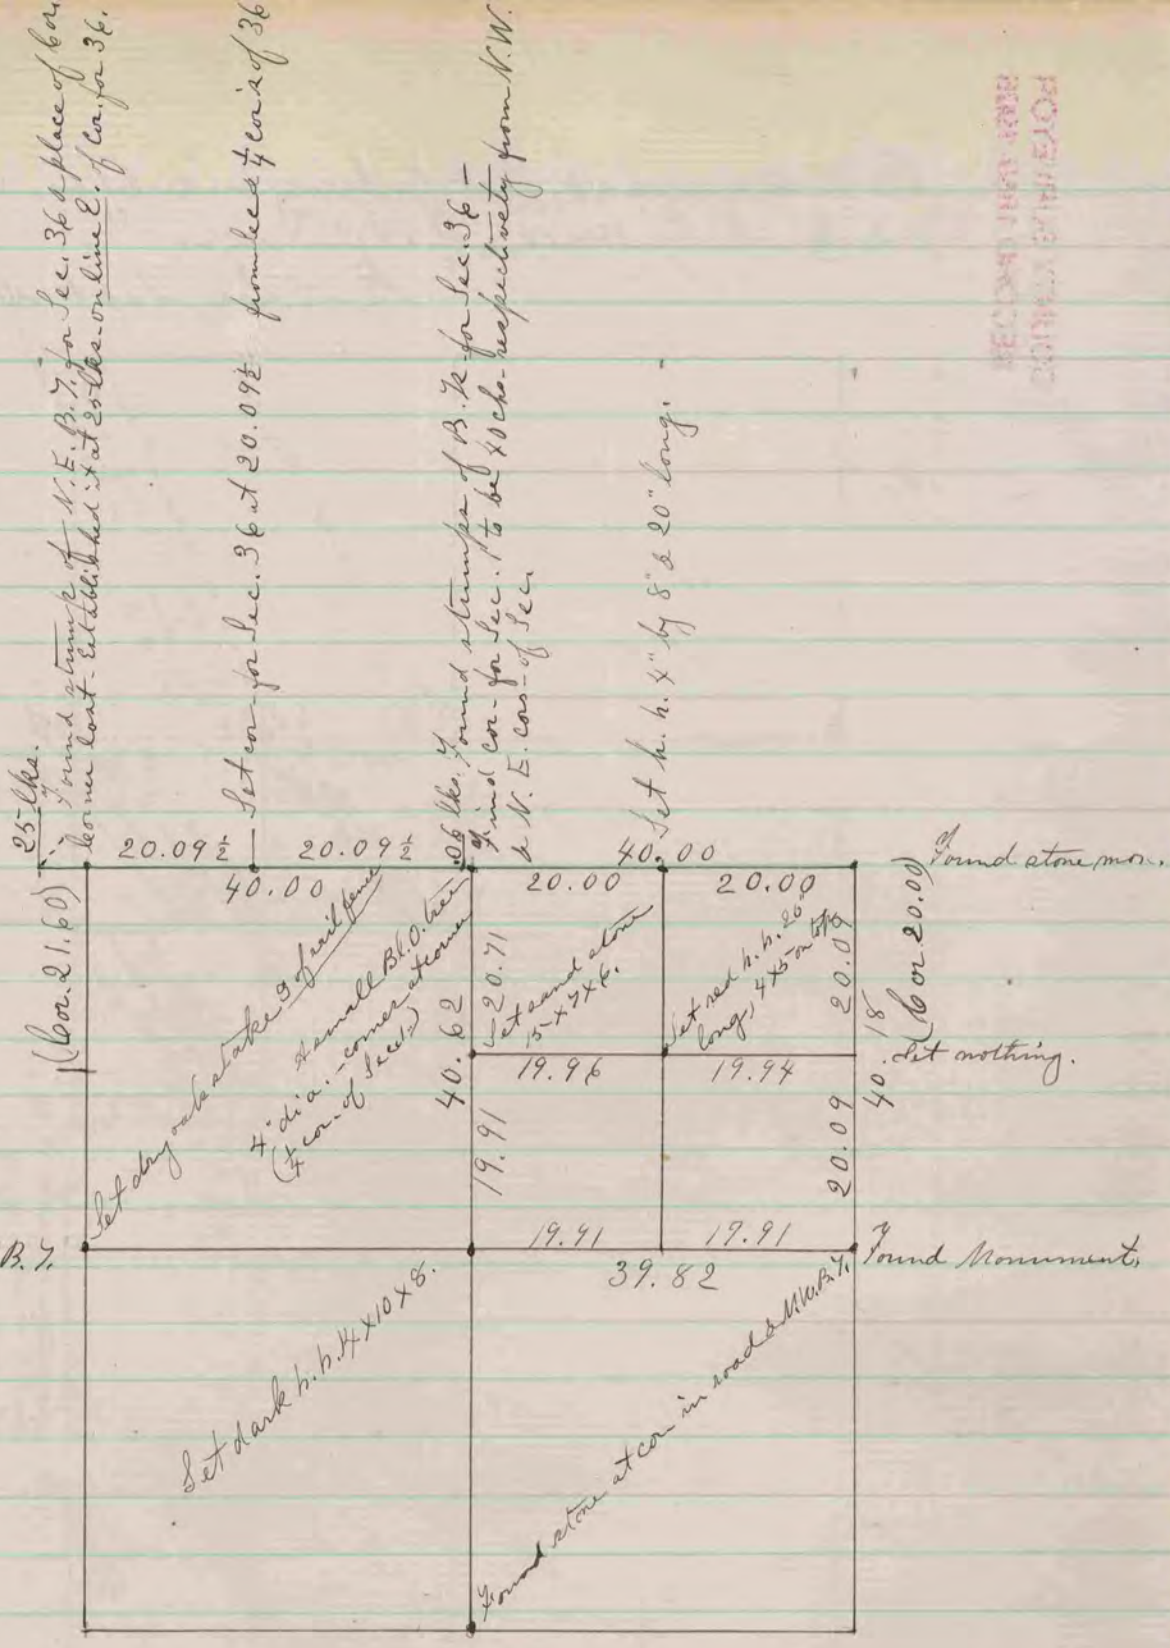 25 lks.
Found stump of N.E. B.T. for Sec. 36 & place of Cor.
Corner lost. Established it at 25 lks. on line E. of Cor. for 36.
Set cor. for Sec. 36 at 20.09½ from Sec & ¼ cor's of 36
.06 lks. Found stumps of B.Ts for Sec. 36 –
Find cor. for Sec. 1 to be 40 chs. respectively from N.W.
& N.E. cors. of Sec.
Set h. h. 4" by 8" & 20" long.
20.09½ 20.09½
40.00
40.00
20.00 20.00
Found stone mon.
(Cor. 21.60)
(Cor 20.00)
Set dry oak stake 9 of rail fence
& small Bl. O. tree
4" dia. – corner at corner
(¼ cor. of Secs.)
20.71
40.62
19.91
Set sand stone
15 x 7 x 6.
Set red h. h. 20"
long, 4 x 5 on top
20.09
40.18
20.09
Set nothing.
19.96 19.94
B.T.
19.91 19.91
39.82
Found Monument.
Set dark h. h. 14 x 10 x 8.
Found stone at cor in road & N.W. B.T.